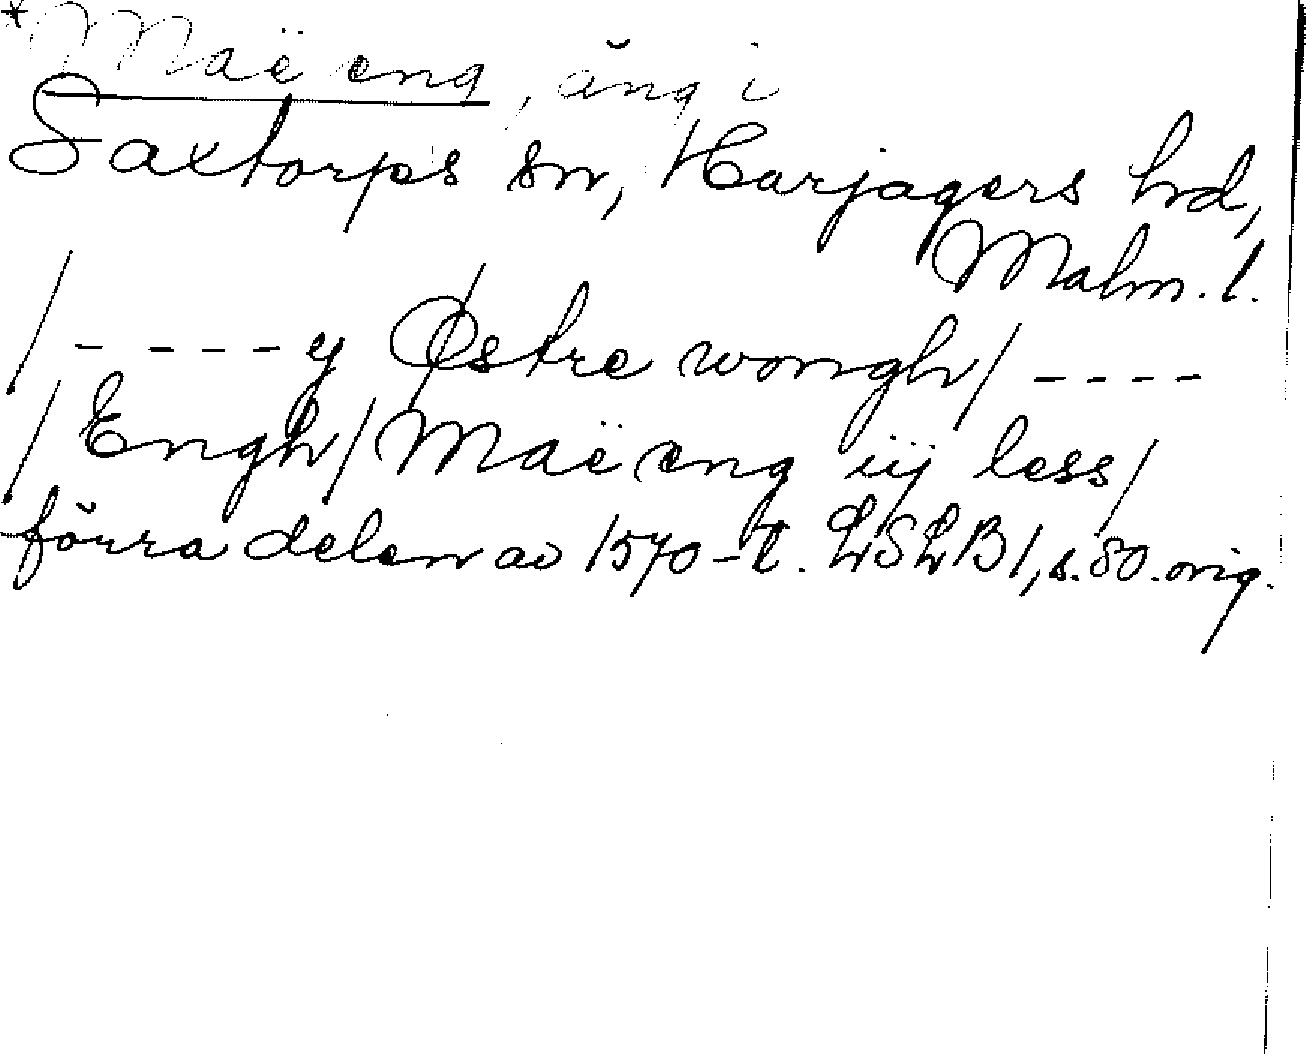 *Maë eng, äng i
Saxtorps sn, Harjagers hd,
Malm. l.
/ - - - - y Østre wongh/ - - - -
/Engh/Maë eng iij less/
förra delen av 1570-t. LSLB1, s.80.orig.